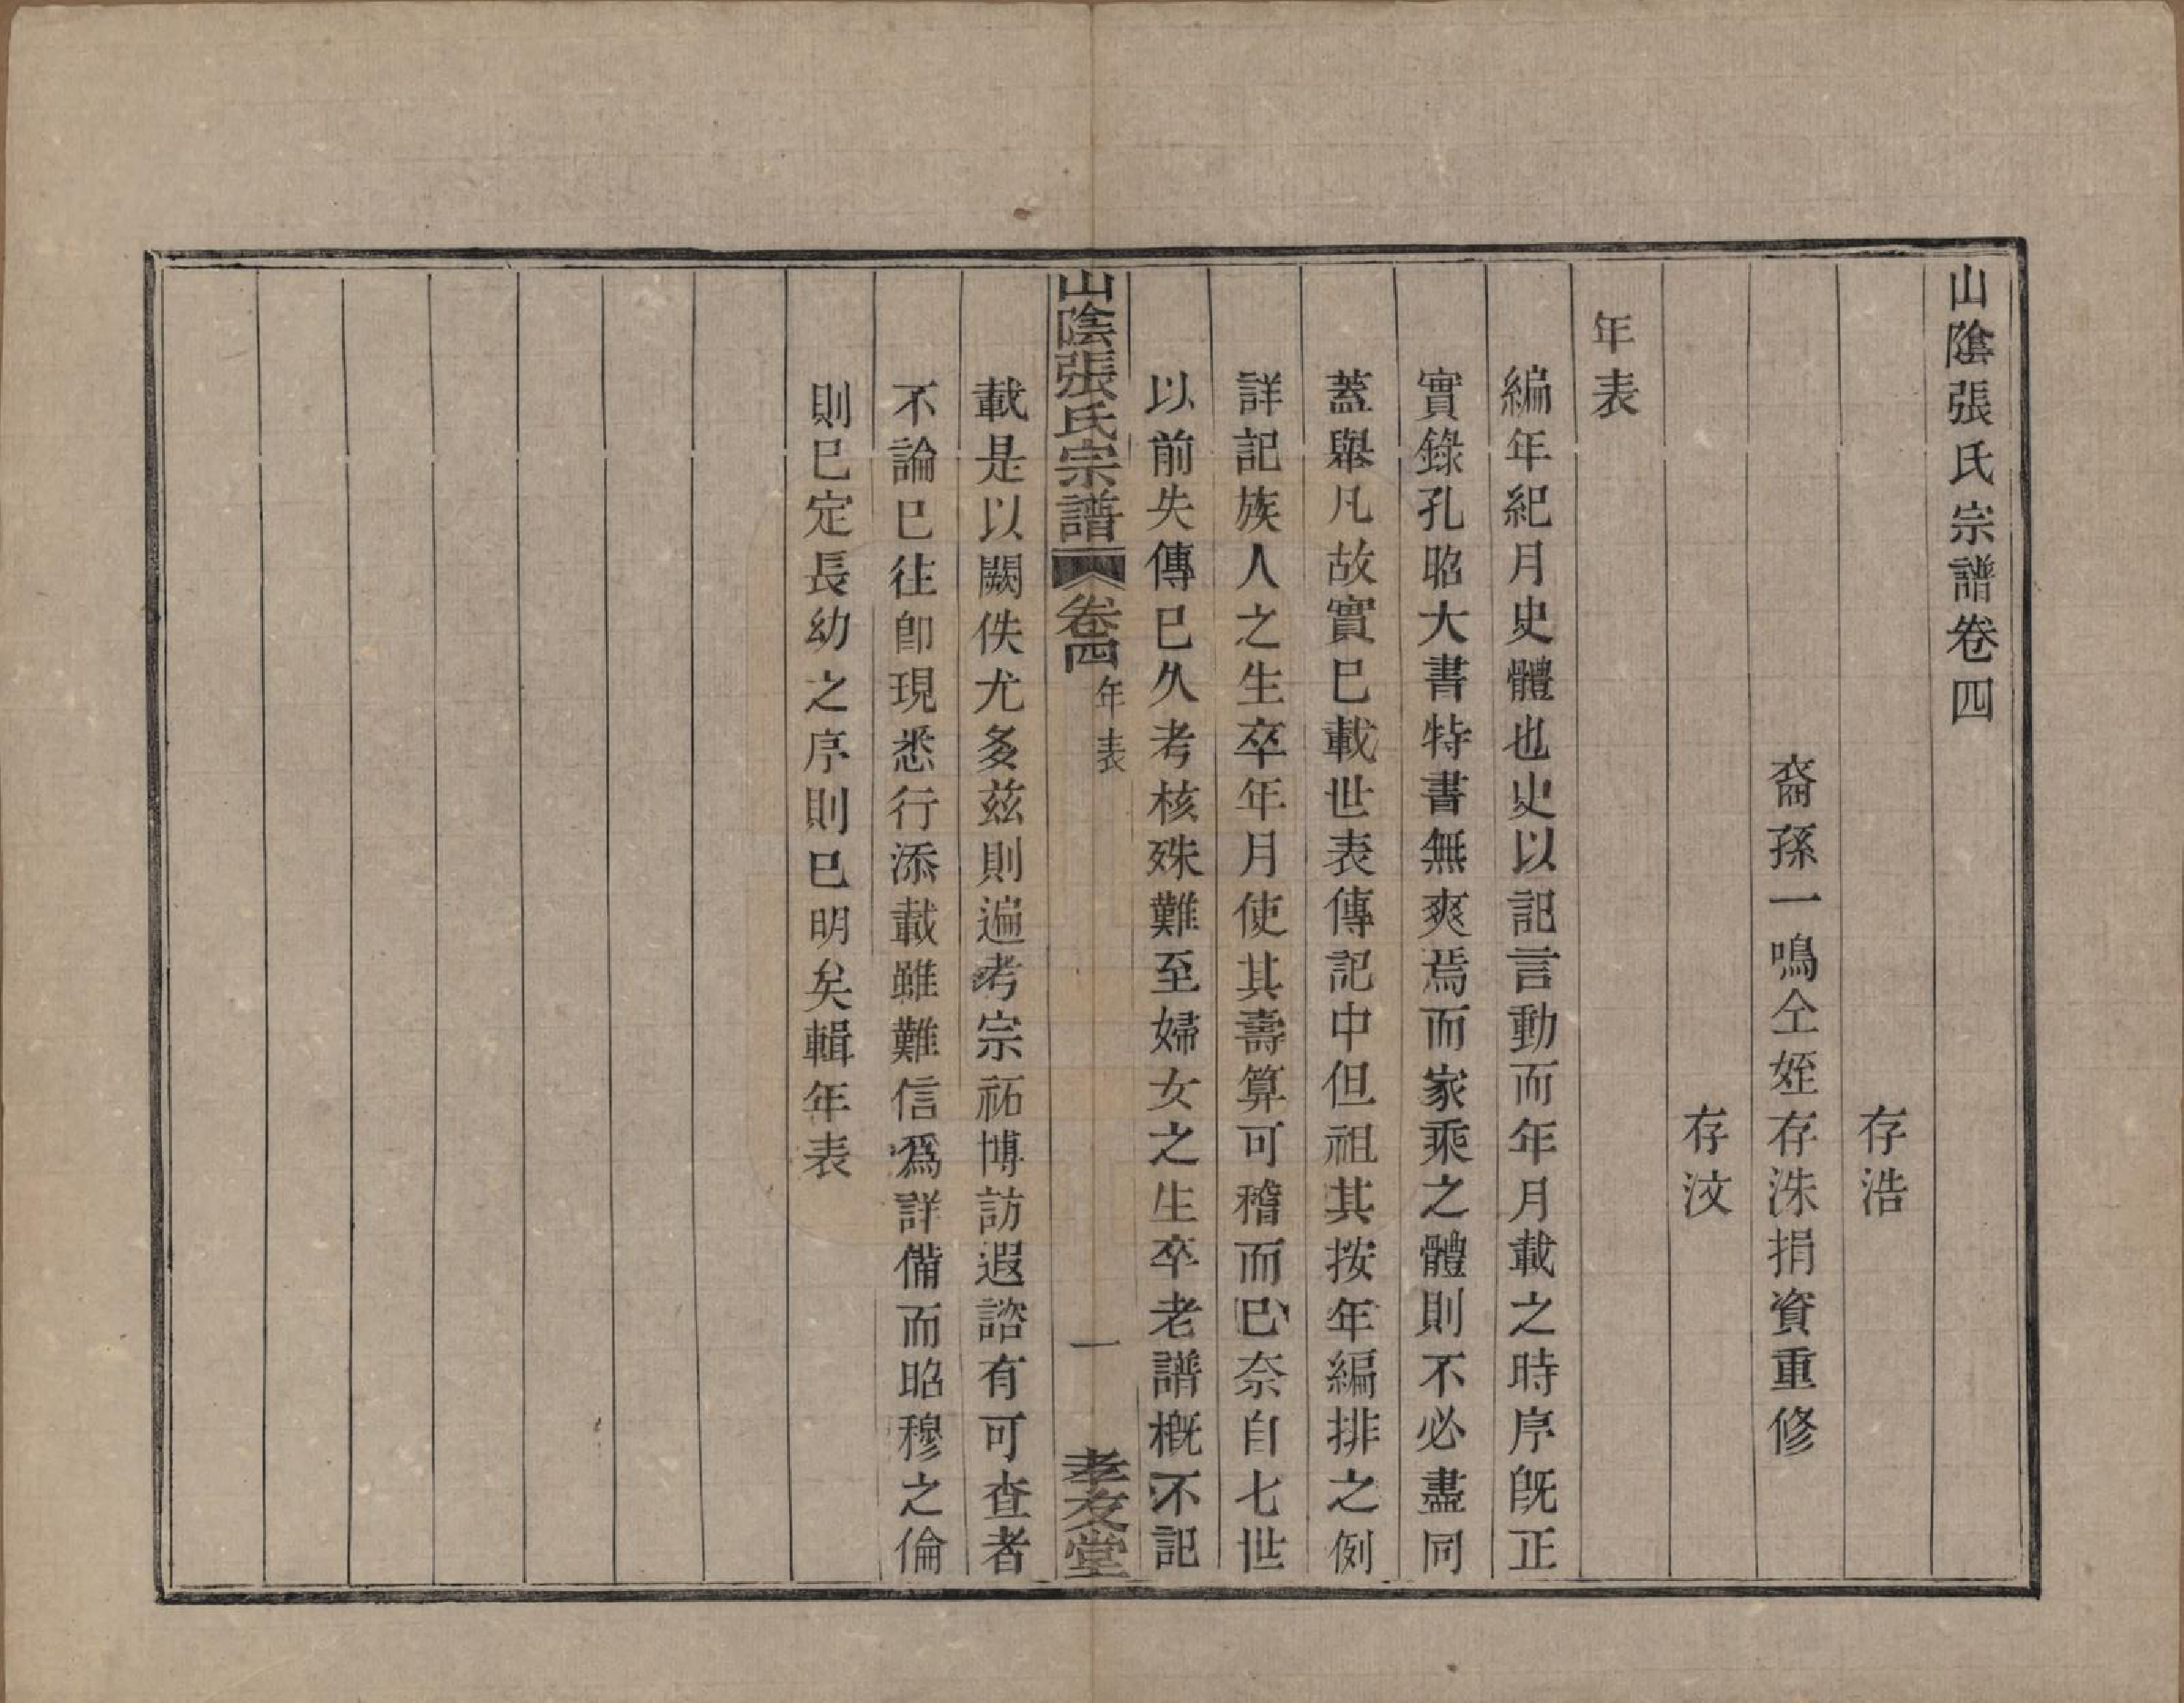 山陰張氏宗譜卷四
存浩
裔孫一鳴仝姪存洙捐資重修
存汶
年表
編年紀月史體也史以記言動而年月載之時序旣正
實錄孔昭大書特書無爽焉而家乘之體則不必盡同
蓋舉凡故實已載世表傳記中但祖其按年編排之例
詳記族人之生卒年月使其壽算可稽而已奈自七世
以前失傳已久考核殊難至婦女之生卒老譜概不記
山陰張氏宗譜 卷四 年表 一 孝友堂
載是以闕佚尤多茲則遍考宗祏博訪遐諮有可查者
不論已往卽現悉行添載雖難信爲詳備而昭穆之倫
則已定長幼之序則已明矣輯年表